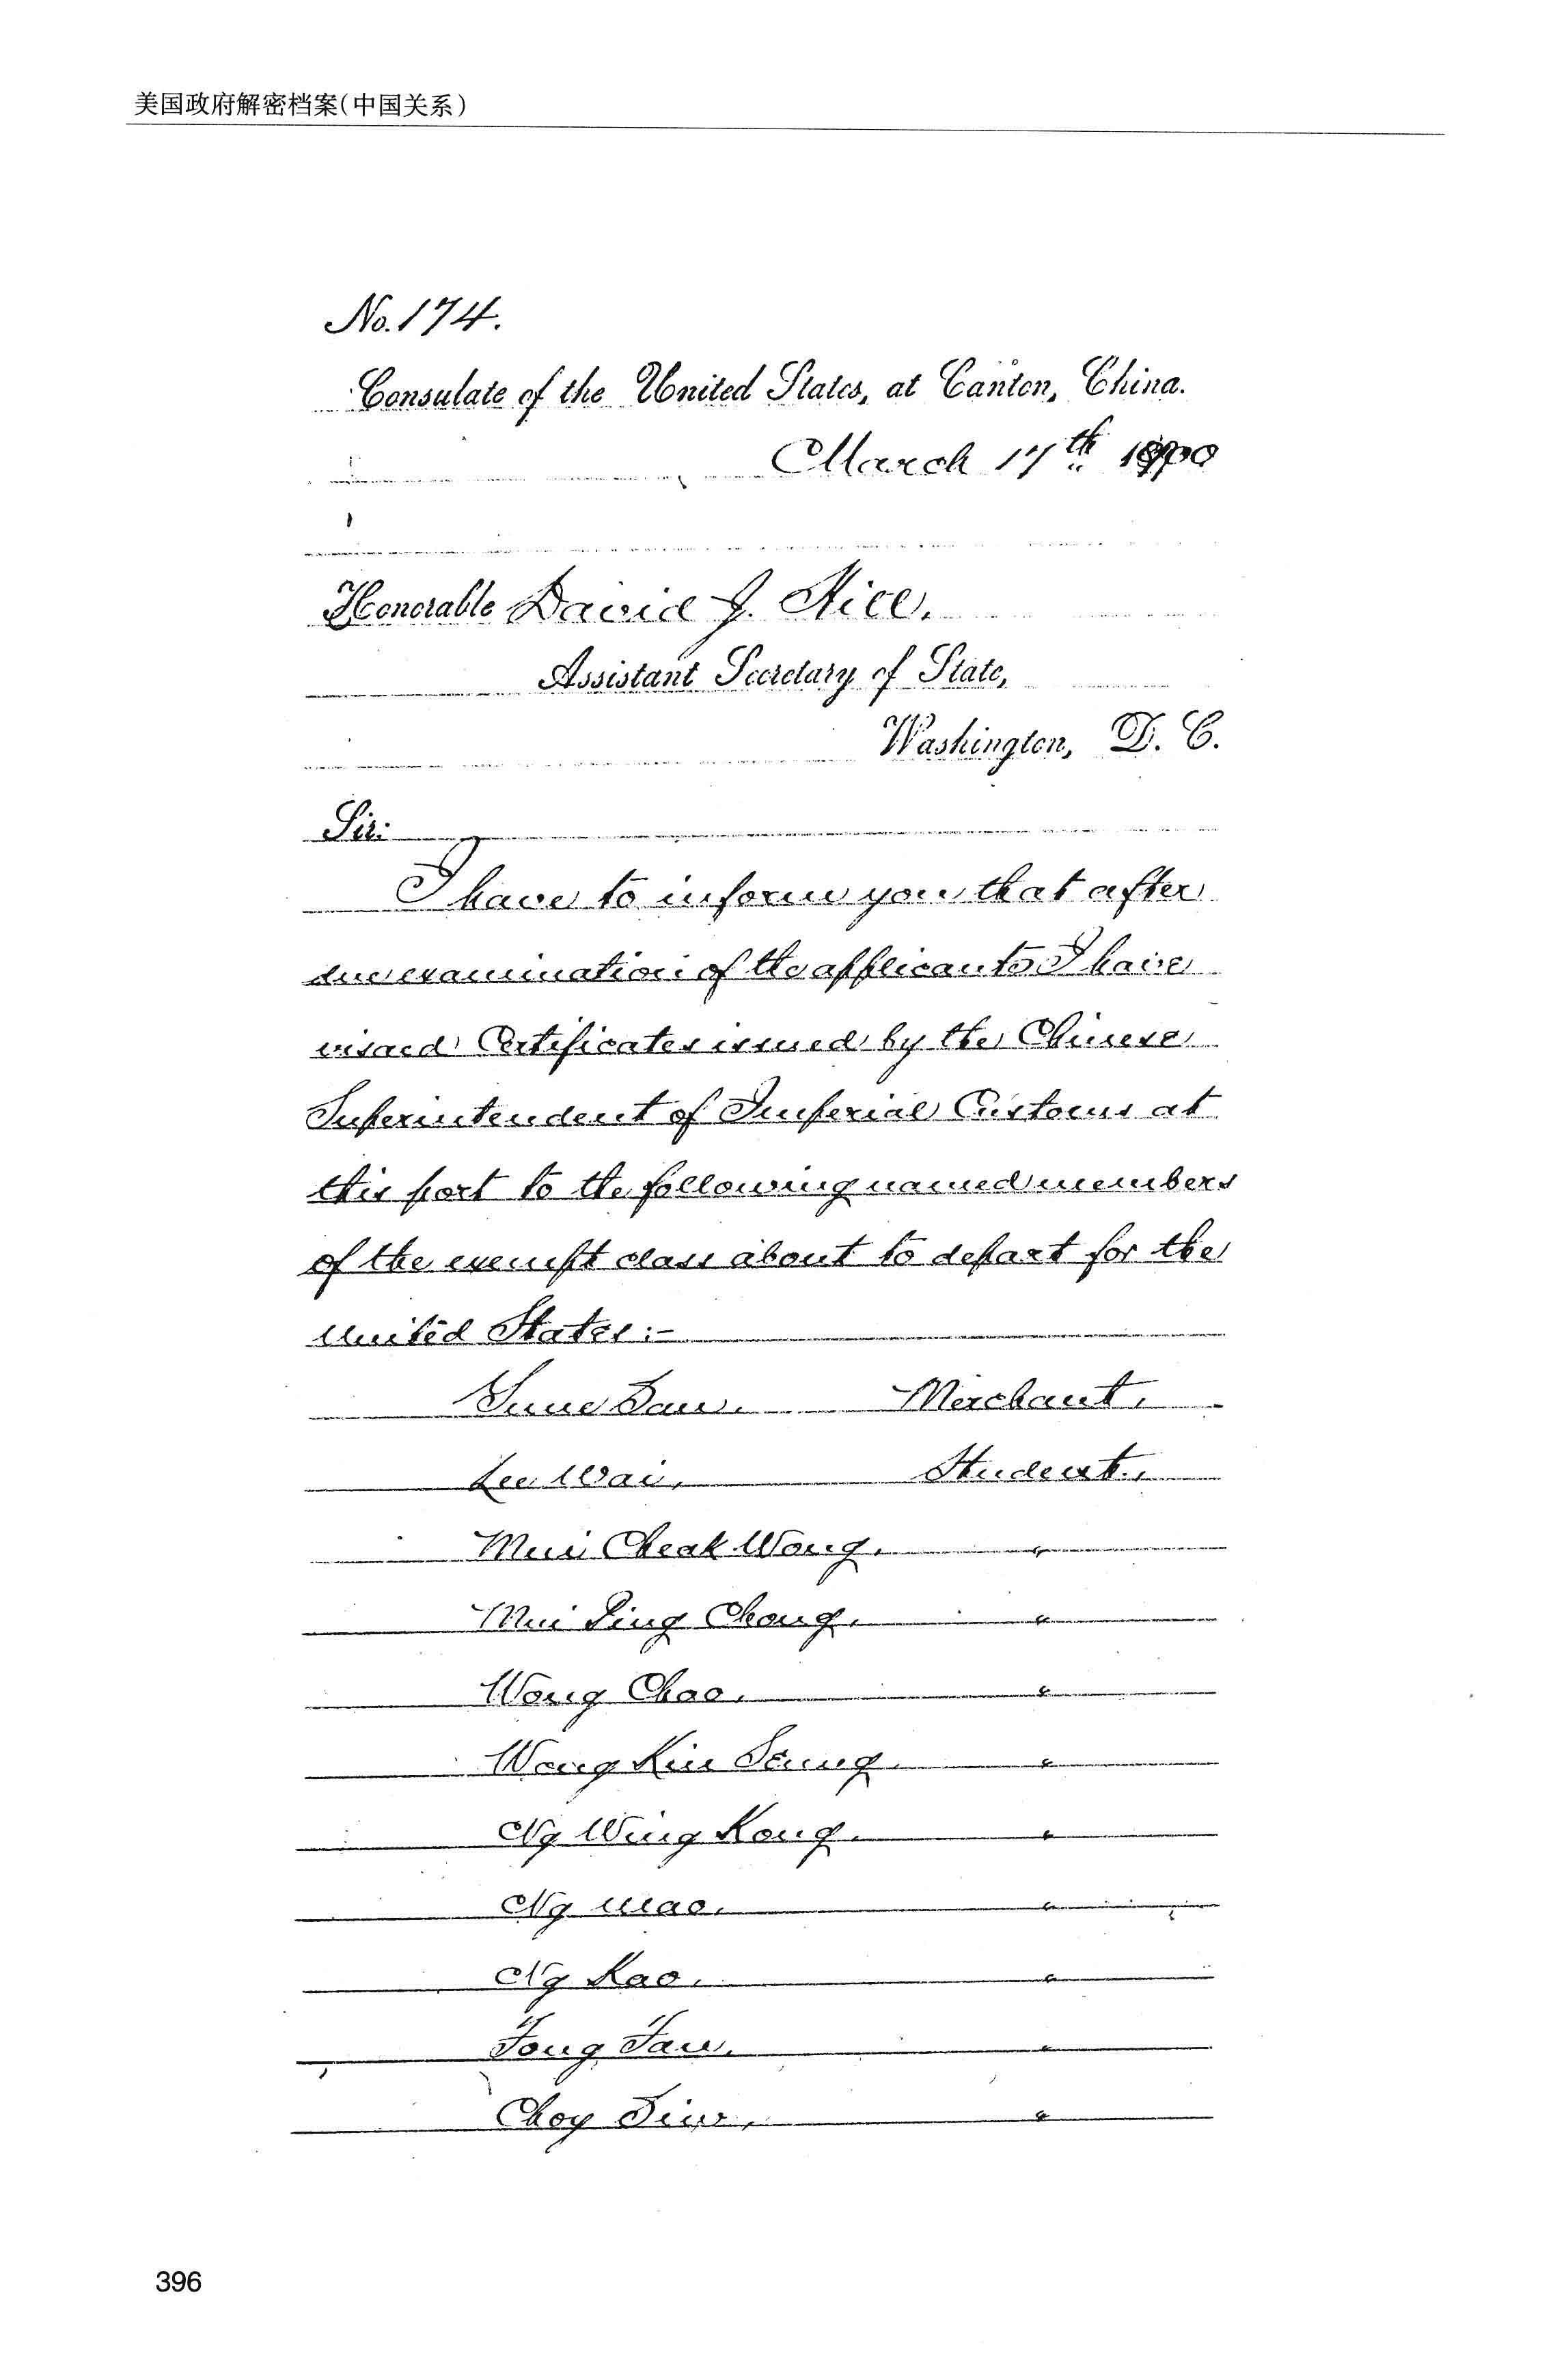 美国政府解密档案(中国关系)
No. 174.
Consulate of the United States, at Canton, China.
March 17th 1900
Honorable David J. Hill,
Assistant Secretary of State,
Washington, D. C.
Sir:
I have to inform you that after
due examination of the applicants I have
visaed Certificates issued by the Chinese
Superintendent of Imperial Customs at
this port to the following named members
of the exempt class about to depart for the
United States:-
Merchant,
Lee Wai, Student,
Mui Cheak Wong, "
Mui Ping Chong, "
Wong Chao, "
Wong Kin "
Ng Wing Kong, "
Ng Mao, "
Ng Kao, "
Fong "
Choy "
396